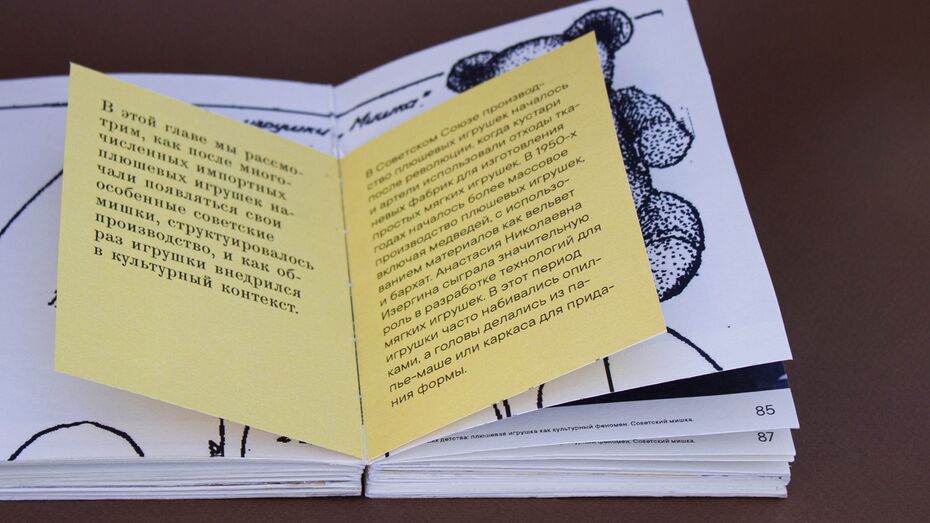 игрушки „Мишка."
В этой главе мы рассмо-
трим, как после много-
численных импортных
плюшевых игрушек на-
чали появляться свои
особенные советские
мишки, структуировалось
производство, и как об-
раз игрушки внедрился
в культурный контекст.
В Советском Союзе производ-
ство плюшевых игрушек началось
после революции, когда кустари
и артели использовали отходы тка-
невых фабрик для изготовления
простых мягких игрушек. В 1950-х
годах началось более массовое
производство плюшевых игрушек,
включая медведей, с использо-
ванием материалов как вельвет
и бархат. Анастасия Николаевна
Изергина сыграла значительную
роль в разработке технологий для
мягких игрушек. В этот период
игрушки часто набивались опил-
ками, а головы делались из па-
пье-маше или каркаса для прида-
ния формы.
детства: плюшевая игрушка как культурный феномен. Советский мишка.
85
феномен. Советский мишка.
87